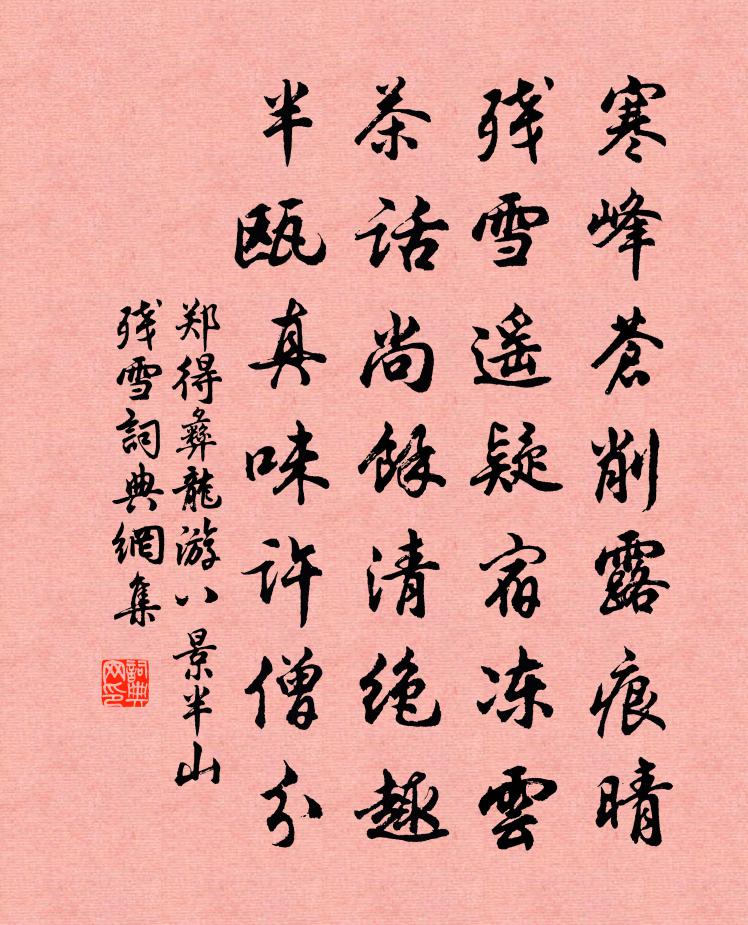 寒峰蒼削露痕晴
残雪遥疑宿冻雲
茶话尚餘清绝趣
半瓯真味许僧分
郑得彝龍游八景半山
残雪詞典網集
詞典
网印